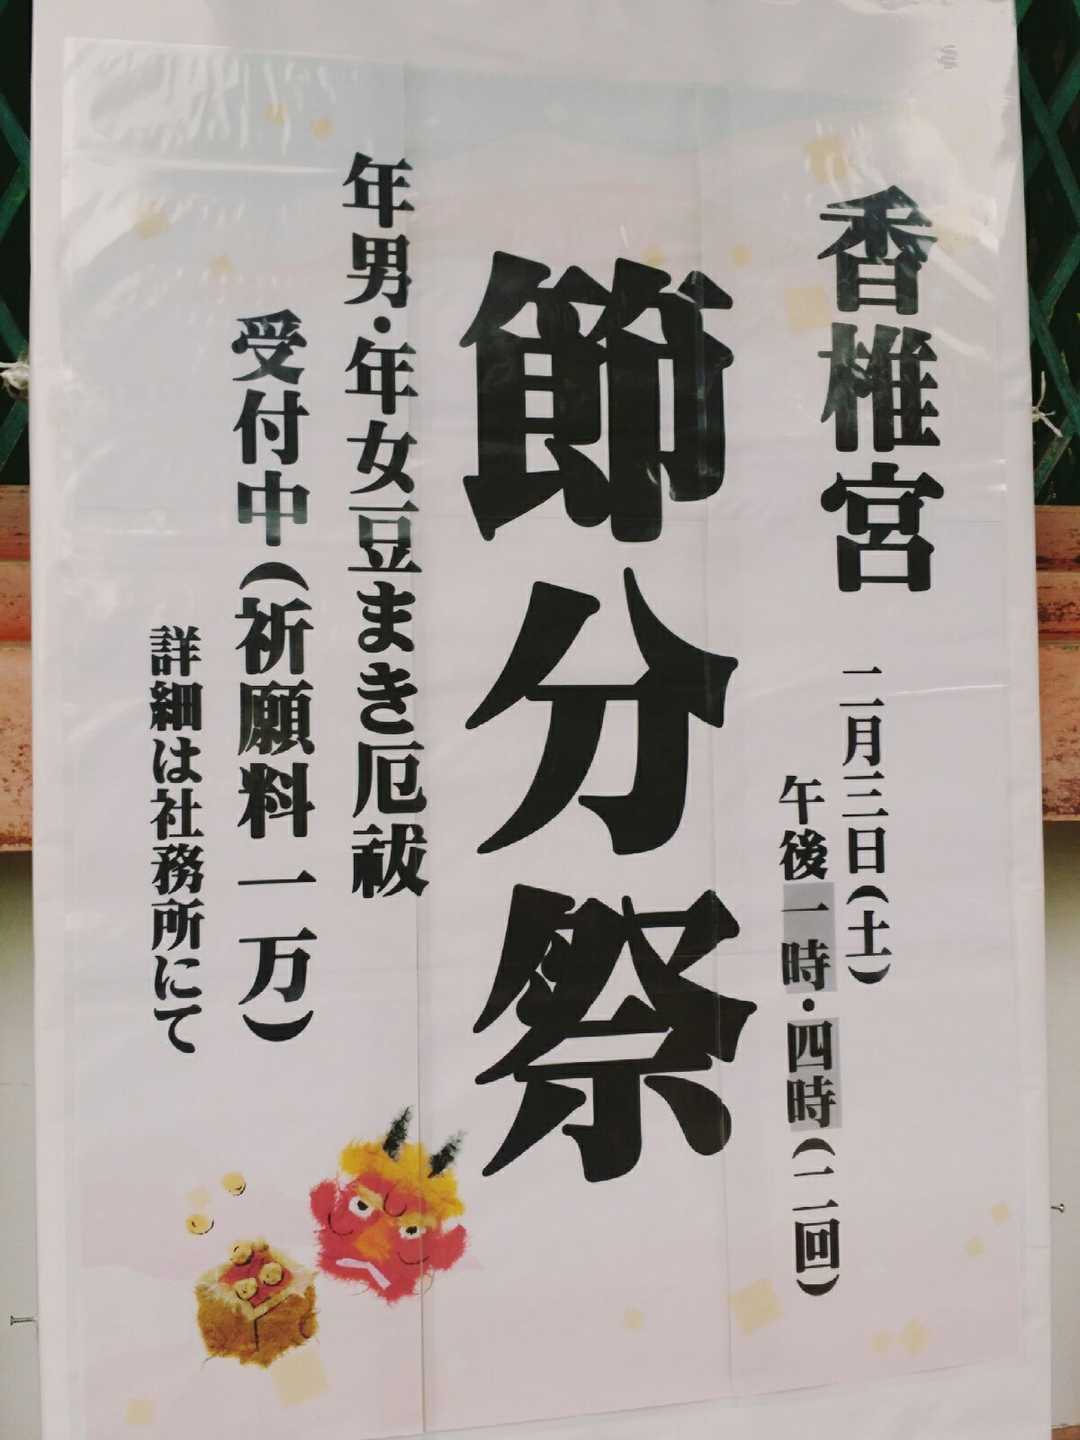 香椎宮
二月三日（土）
午後一時・四時（二回）
節分祭
年男・年女豆まき厄祓
受付中（祈願料一万）
詳細は社務所にて